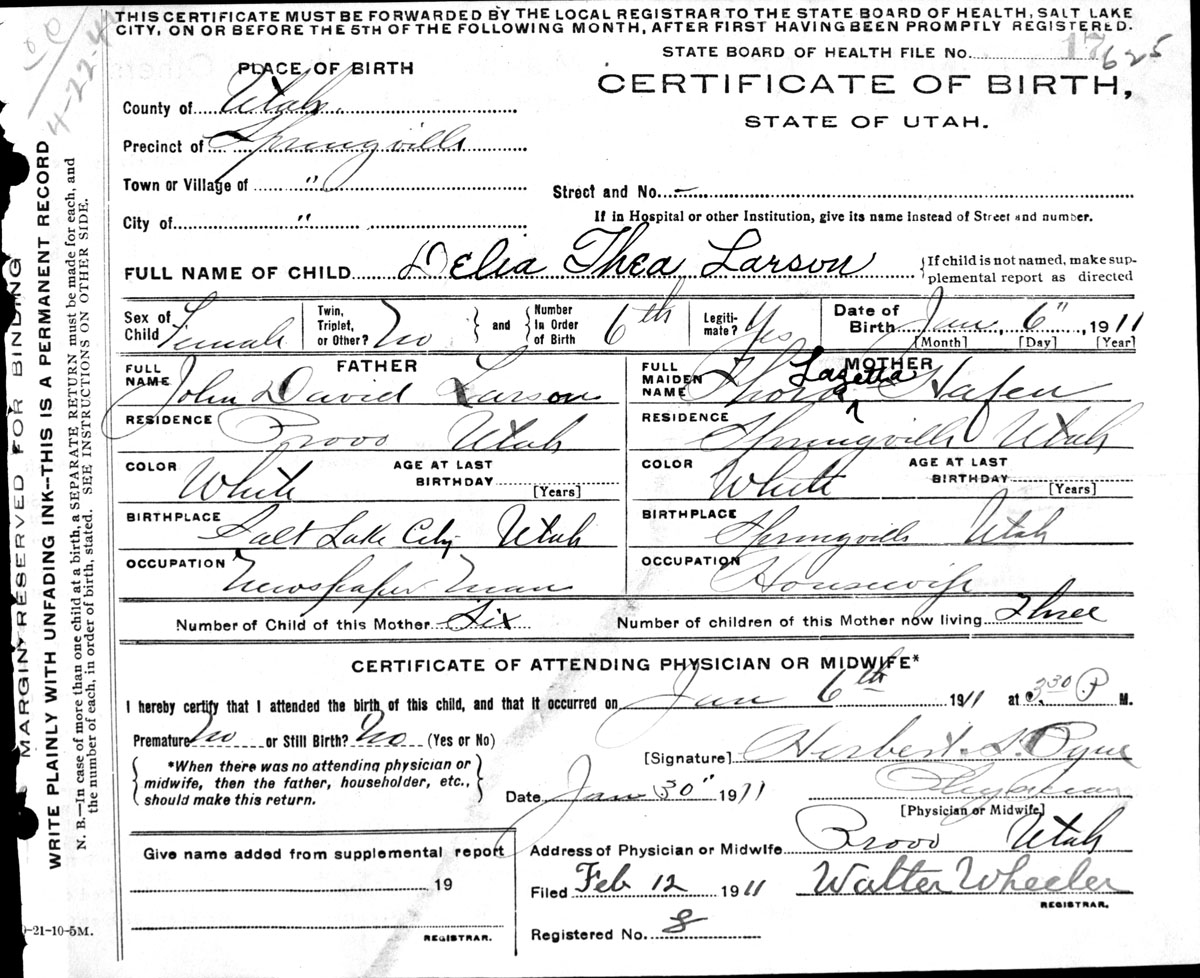 THIS CERTIFICATE MUST BE FORWARDED BY THE LOCAL REGISTRAR TO THE STATE BOARD OF HEALTH, SALT LAKE
CITY, ON OR BEFORE THE 5TH OF THE FOLLOWING MONTH, AFTER FIRST HAVING BEEN PROMPTLY REGISTERED.
STATE BOARD OF HEALTH FILE No. 17 625
4-22-4
PLACE OF BIRTH
CERTIFICATE OF BIRTH,
STATE OF UTAH.
County of Utah.
Precinct of Springville
Town or Village of "
Street and No. -
City of "
If in Hospital or other Institution, give its name instead of Street and number.
FULL NAME OF CHILD Delia Thea Larson {If child is not named, make sup-
plemental report as directed
Sex of Child Female
Twin, Triplet, or Other? No } and {
Number In Order of Birth 6th
Legiti- mate? Yes
Date of Birth Jan, 6", 1911
[Month] [Day] [Year]
FATHER
FULL NAME John David Larson
RESIDENCE Provo Utah
COLOR White AGE AT LAST BIRTHDAY [Years]
BIRTHPLACE Salt Lake City Utah
OCCUPATION Newspaper Man
MOTHER
FULL MAIDEN NAME Thora Lazetta Hafen
RESIDENCE Springville Utah
COLOR White AGE AT LAST BIRTHDAY [Years]
BIRTHPLACE Springville Utah
OCCUPATION Housewife
Number of Child of this Mother Six Number of children of this Mother now living Three
CERTIFICATE OF ATTENDING PHYSICIAN OR MIDWIFE*
I hereby certify that I attended the birth of this child, and that it occurred on Jan 6th 1911 at 3.30 P. M.
Premature No or Still Birth? No (Yes or No)
[Signature] Herbert S. Pyne
{ *When there was no attending physician or
midwife, then the father, householder, etc.,
should make this return. }
Date Jan 30" 1911 Physician
[Physician or Midwife]
Address of Physician or Midwife Provo Utah
Give name added from supplemental report
19
REGISTRAR.
Filed Feb 12 1911 Walter Wheeler
REGISTRAR.
Registered No. 8
-21-10-5M.
MARGIN RESERVED FOR BINDING
WRITE PLAINLY WITH UNFADING INK--THIS IS A PERMANENT RECORD
N. B.—In case of more than one child at a birth, a SEPARATE RETURN must be made for each, and
the number of each, in order of birth, stated. SEE INSTRUCTIONS ON OTHER SIDE.